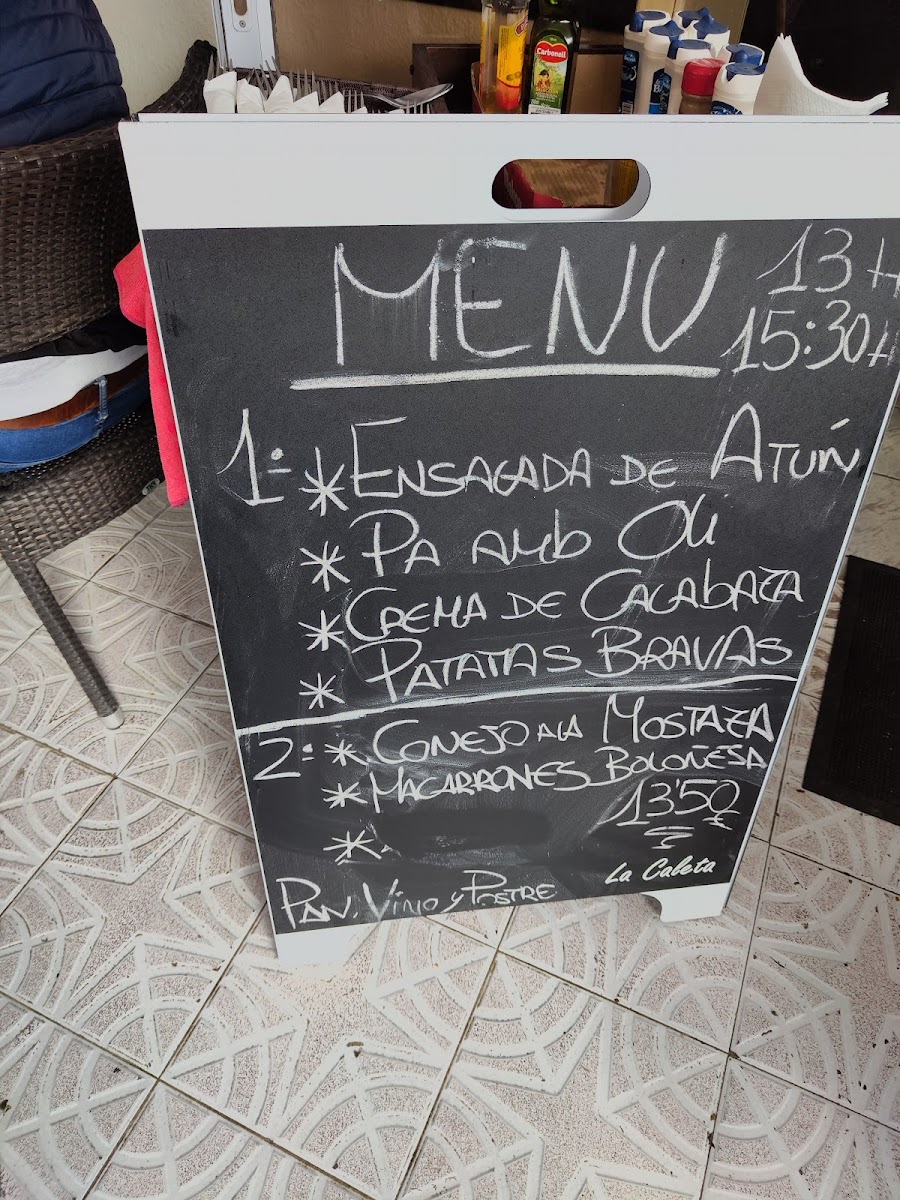 Carbonell
MENU
13 H
15:30 H
1º * ENSALADA DE ATÚN
* PA AMB OLI
* CREMA DE CALABAZA
* PATATAS BRAVAS
2º * CONEJO A LA MOSTAZA
* MACARRONES BOLOÑESA
13'50 €
*
PAN, VINO y POSTRE
La Caleta